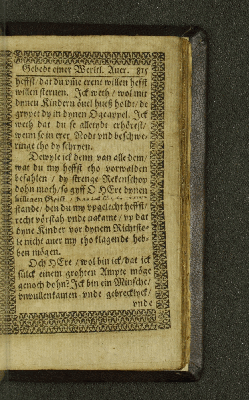 Gebedt einer Werltl. Aver. 815
heffst / dat du vmme erent willen hefft
willen steruen. Ick weth / wol mit
dynen Kindern övel hueß holdt / de
grypet dy in dynen Ogeappel. Ick
weth dat du se alletydt erhörest /
wenn se in erer Nodt vnd beschwe-
ringe tho dy schryen.
Dewyle ick denn van alle dem /
wat du my heffst tho vorwalden
befahlen / dy strenge Rekenschop
dohn moth / so gyff O HEre dynen
hilligen Geist /
stande / den du my vpgelecht heffst /
recht vörstah vnde vakame / vp dat
dyne Kinder vor dynem Richtsto-
le nicht auer my tho klagende heb-
ben mögen.
Och HEre / wol bin ick / dat ick
sülck einem grohten Ampte möge
genoch dohn? Ick bin ein Minsche /
vnvullenkamen vnde gebrecklyck /
vnde